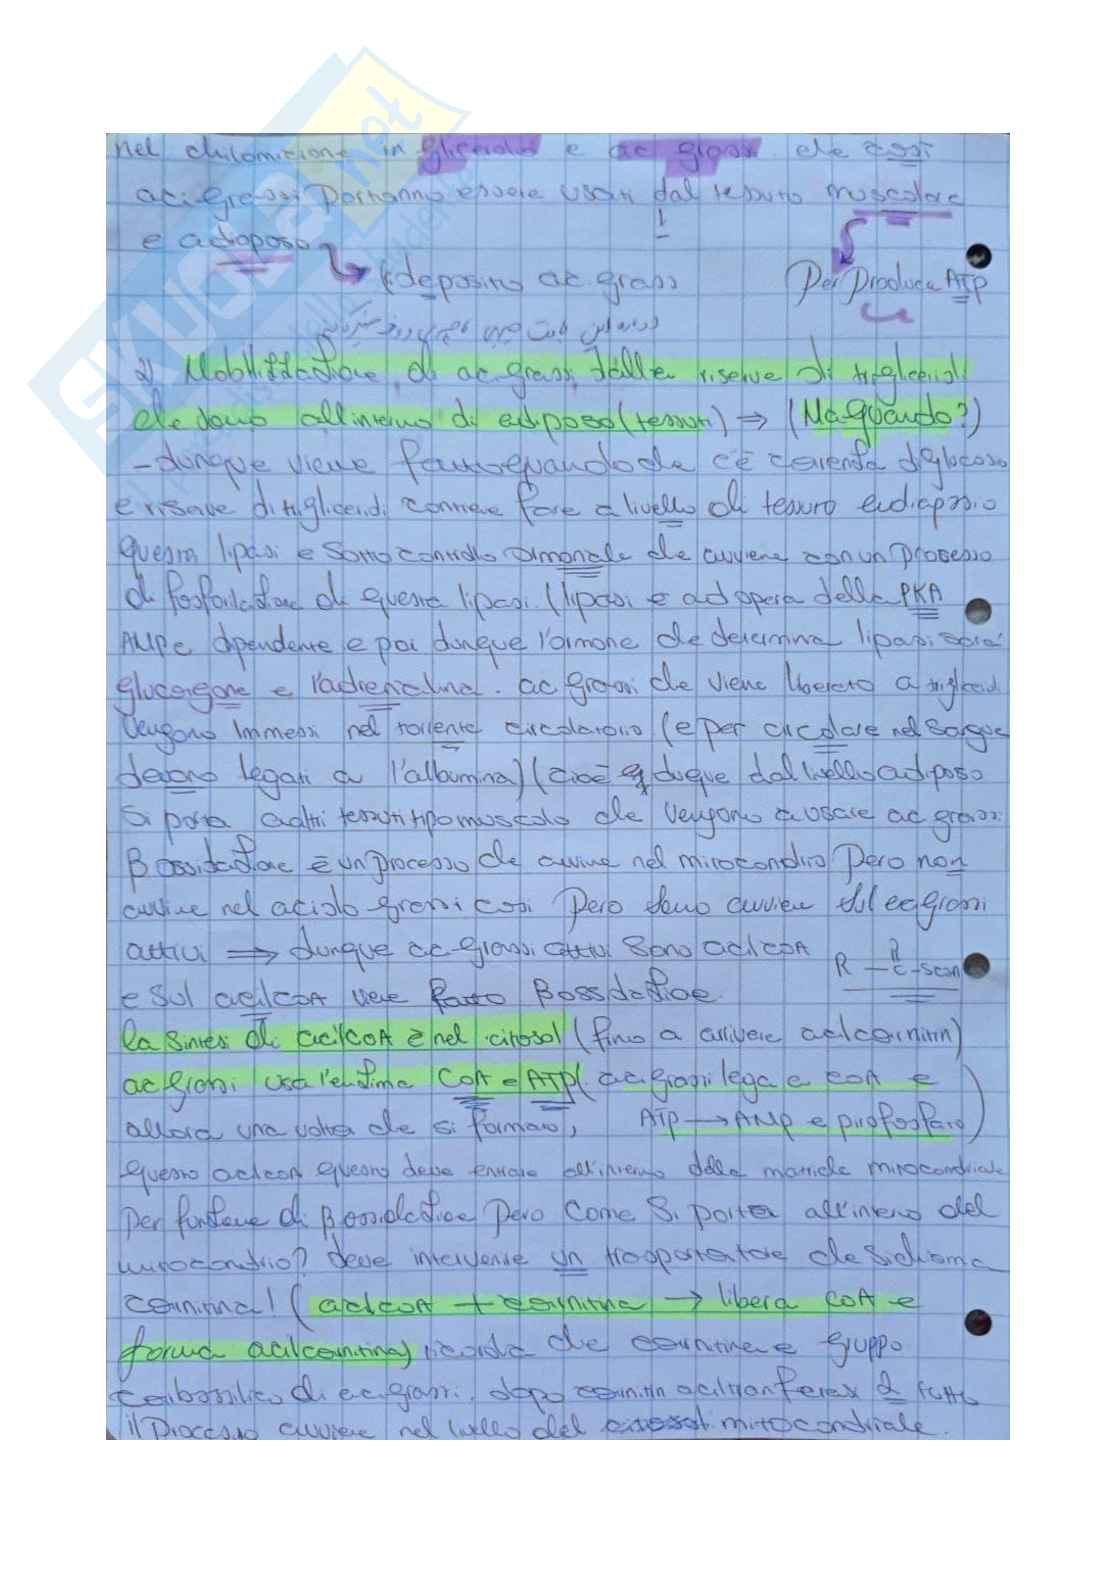 nel chilomicione in glicerolo e ac grassi che così
aci.grassi Potranno essere usati dal tessuto muscolare
e adoposo → deposito ac. grassi
Per Produce ATP
2) Mobilizzazione di ac. grassi dalle riserve di trigliceridi
che sono all'interno di adiposo (tessuti) ⇒ (Ma quando?)
- dunque viene fatto quando che c'è carenza di glucosio
e riserve di trigliceridi conviene fare a livello di tessuto
questa lipasi è sotto controllo ormonale che avviene con un processo
di fosforilazione di questa lipasi. (lipasi è ad opera della PKA
AMPc dipendente e poi dunque l'ormone che determina lipasi sarà
glucagone e l'adrenalina. ac grassi che viene liberato a trigliceridi
vengono immessi nel torrente circolatorio (e per circolare nel sangue
devono legati a l'albumina) (cioè duque dal livello adiposo
si porta a altri tessuti tipo muscolo che vengono a usare ac grassi
β ossidazione è un processo che avviene nel mitocondrio Però non
avviene nel acido grassi così Però avviene sul ac grassi
attivi ⇒ dunque ac-grassi attivi sono acilcoA
R - C - SCoA
O
e sul acilcoA viene fatto β ossidazione.
la sintesi di acilcoA è nel citosol (fino a arrivare acilcarnitin)
ac grassi usa l'enzima CoA e ATP (ac.grassi lega a CoA e
allora una volta che si formano, ATP → AMP e pirofosfato)
questo acilcoA questo deve entrare all'interno della matrice mitocondriale
per funzione di β ossidazione Però come si porta all'interno del
mitocondrio? deve intervenire un trasportatore che si chiama
carnitina! (acilcoA + carnitina → libera CoA e
forma acilcarnitina) ricorda che carnitina e gruppo
carbossilico di ac.grassi. dopo carnitin aciltransferasi 2 tutto
il Processo avviene nel livello del mitocondriale.